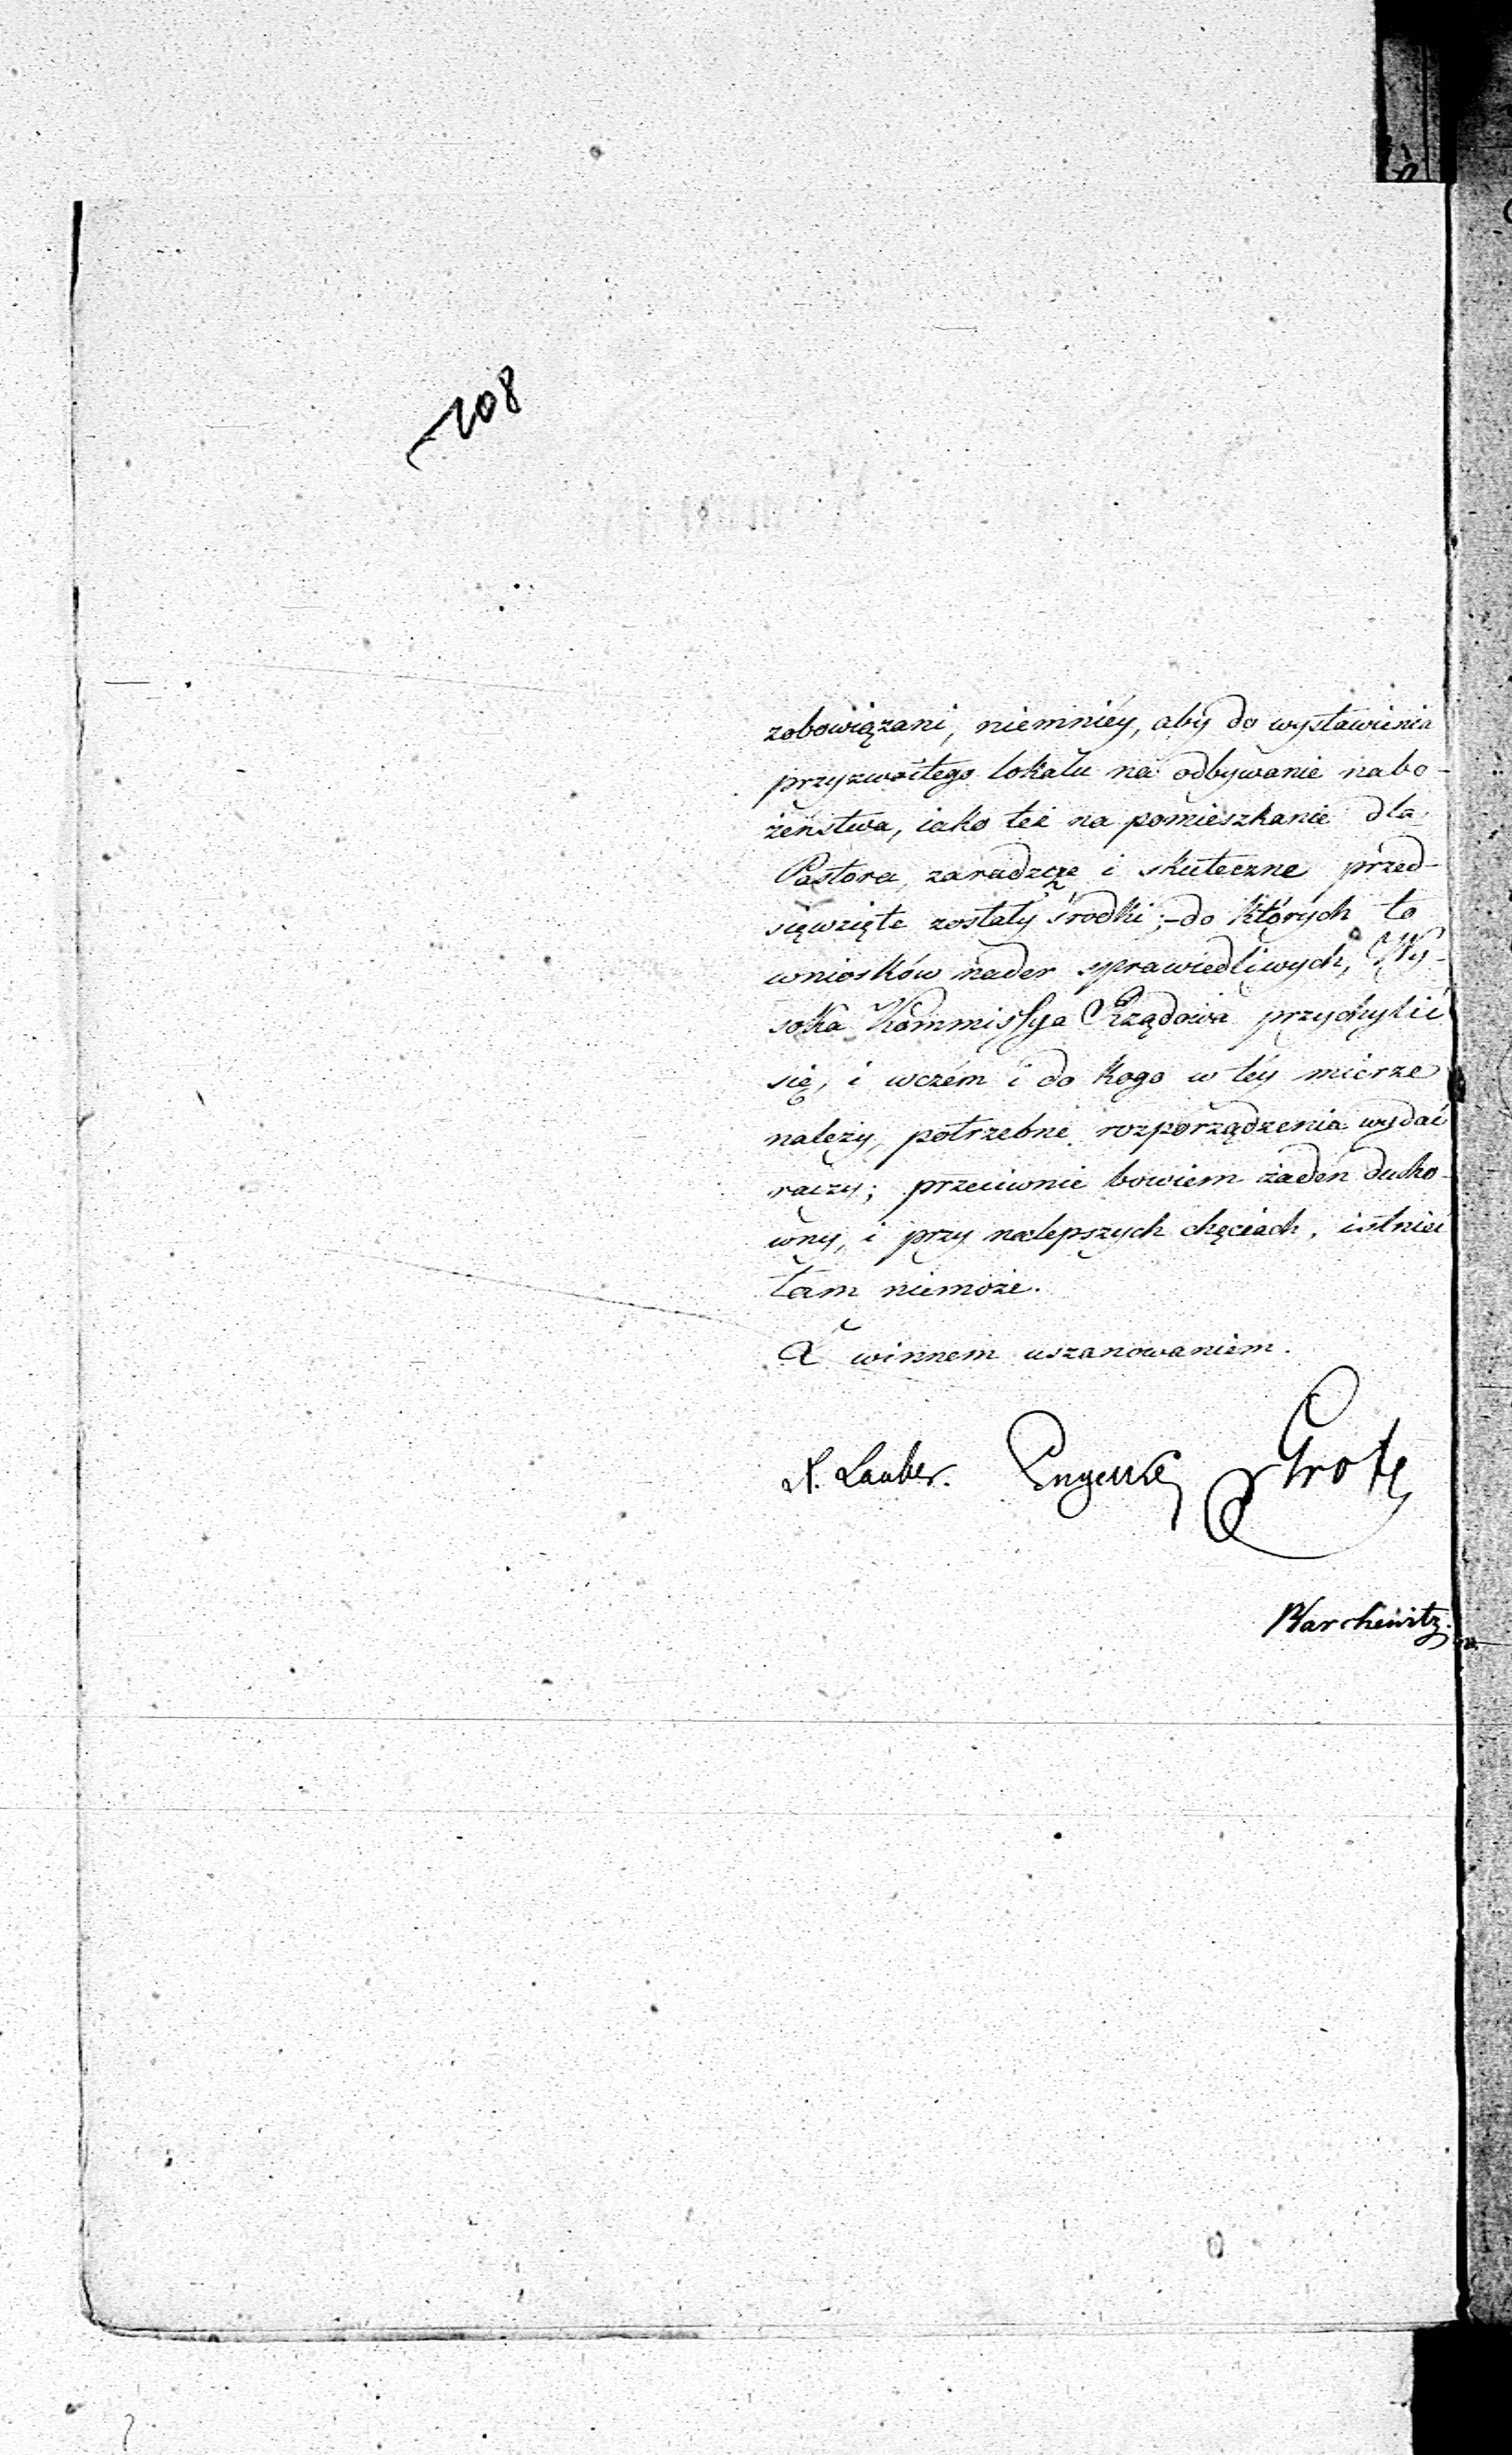 108
zobowiązani, niemniéy, aby do wystawienia
przyzwoitego lokalu na odbywanie nabo-
żeństwa, iako też na pomieszkanie dla
Pastora, zaradzcze i skuteczne przed-
sięwzięte zostały środki; - do których to
wniosków nader sprawiedliwych, Wy-
soka Kommissya Rządowa przychylić
się, i wczém i do kogo w téy mierze
należy, potrzebne rozporządzenia wydać
raczy; przeciwnie bowiem żaden ducho-
wny, i przy nalepszych chęciach, istnieć
tam niemoże.
Z winnem uszanowaniem.
Lauber. Grote